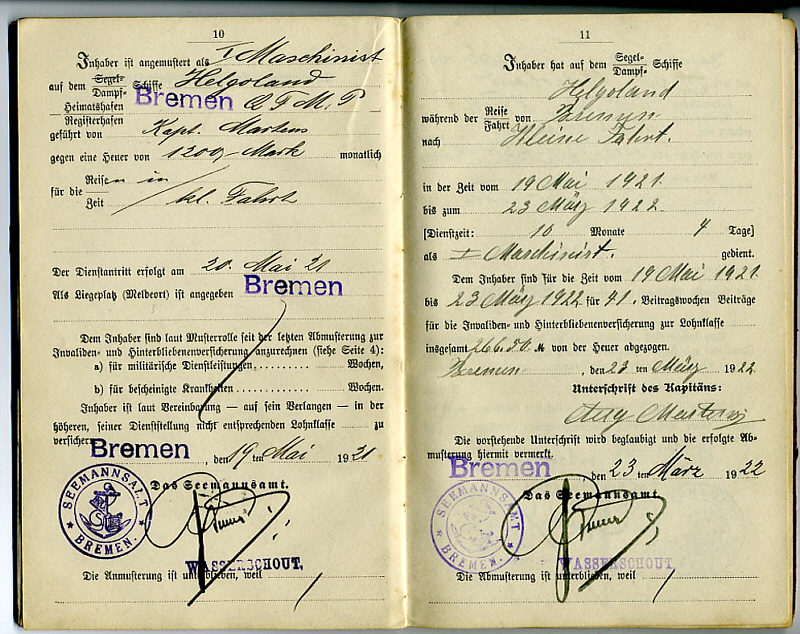 10
Inhaber ist angemustert als I Maschinist
auf dem Segel- Dampf- Schiffe Helgoland
Heimatshafen Registerhafen Bremen Q F M P
geführt von Kapt. Martens
gegen eine Heuer von 1200 Mark monatlich
für die Reisen in Zeit / kl. Fahrt
Der Dienstantritt erfolgt am 20. Mai 21
Als Liegeplatz (Meldeort) ist angegeben Bremen
Dem Inhaber sind laut Musterrolle seit der letzten Abmusterung zur
Invaliden- und Hinterbliebenenversicherung anzurechnen (siehe Seite 4):
a) für militärische Dienstleistungen Wochen,
b) für bescheinigte Krankheiten Wochen.
Inhaber ist laut Vereinbarung — auf sein Verlangen — in der
höheren, seiner Dienststellung nicht entsprechenden Lohnklasse zu
versichern.
Bremen, den 19 ten Mai 1921
Das Seemannsamt.
SEEMANNSAMT BREMEN.
WASSERSCHOUT.
Die Anmusterung ist unterblieben, weil
11
Inhaber hat auf dem Segel- Dampf- Schiffe
Helgoland
während der Reise Fahrt von Bremen
nach Kleine Fahrt.
in der Zeit vom 19 Mai 1921.
bis zum 23 März 1922.
[Dienstzeit: 10 Monate 4 Tage]
als I Maschinist. gedient.
Dem Inhaber sind für die Zeit vom 19 Mai 1921.
bis 23 März 1922 für 41. Beitragswochen Beiträge
für die Invaliden- und Hinterbliebenenversicherung zur Lohnklasse
insgesamt 266.50 M von der Heuer abgezogen.
Bremen, den 23 ten März 1922
Unterschrift des Kapitäns:
Die vorstehende Unterschrift wird beglaubigt und die erfolgte Ab-
musterung hiermit vermerkt.
Bremen, den 23 ten März 1922
Das Seemannsamt.
SEEMANNSAMT BREMEN.
WASSERSCHOUT.
Die Abmusterung ist unterblieben, weil